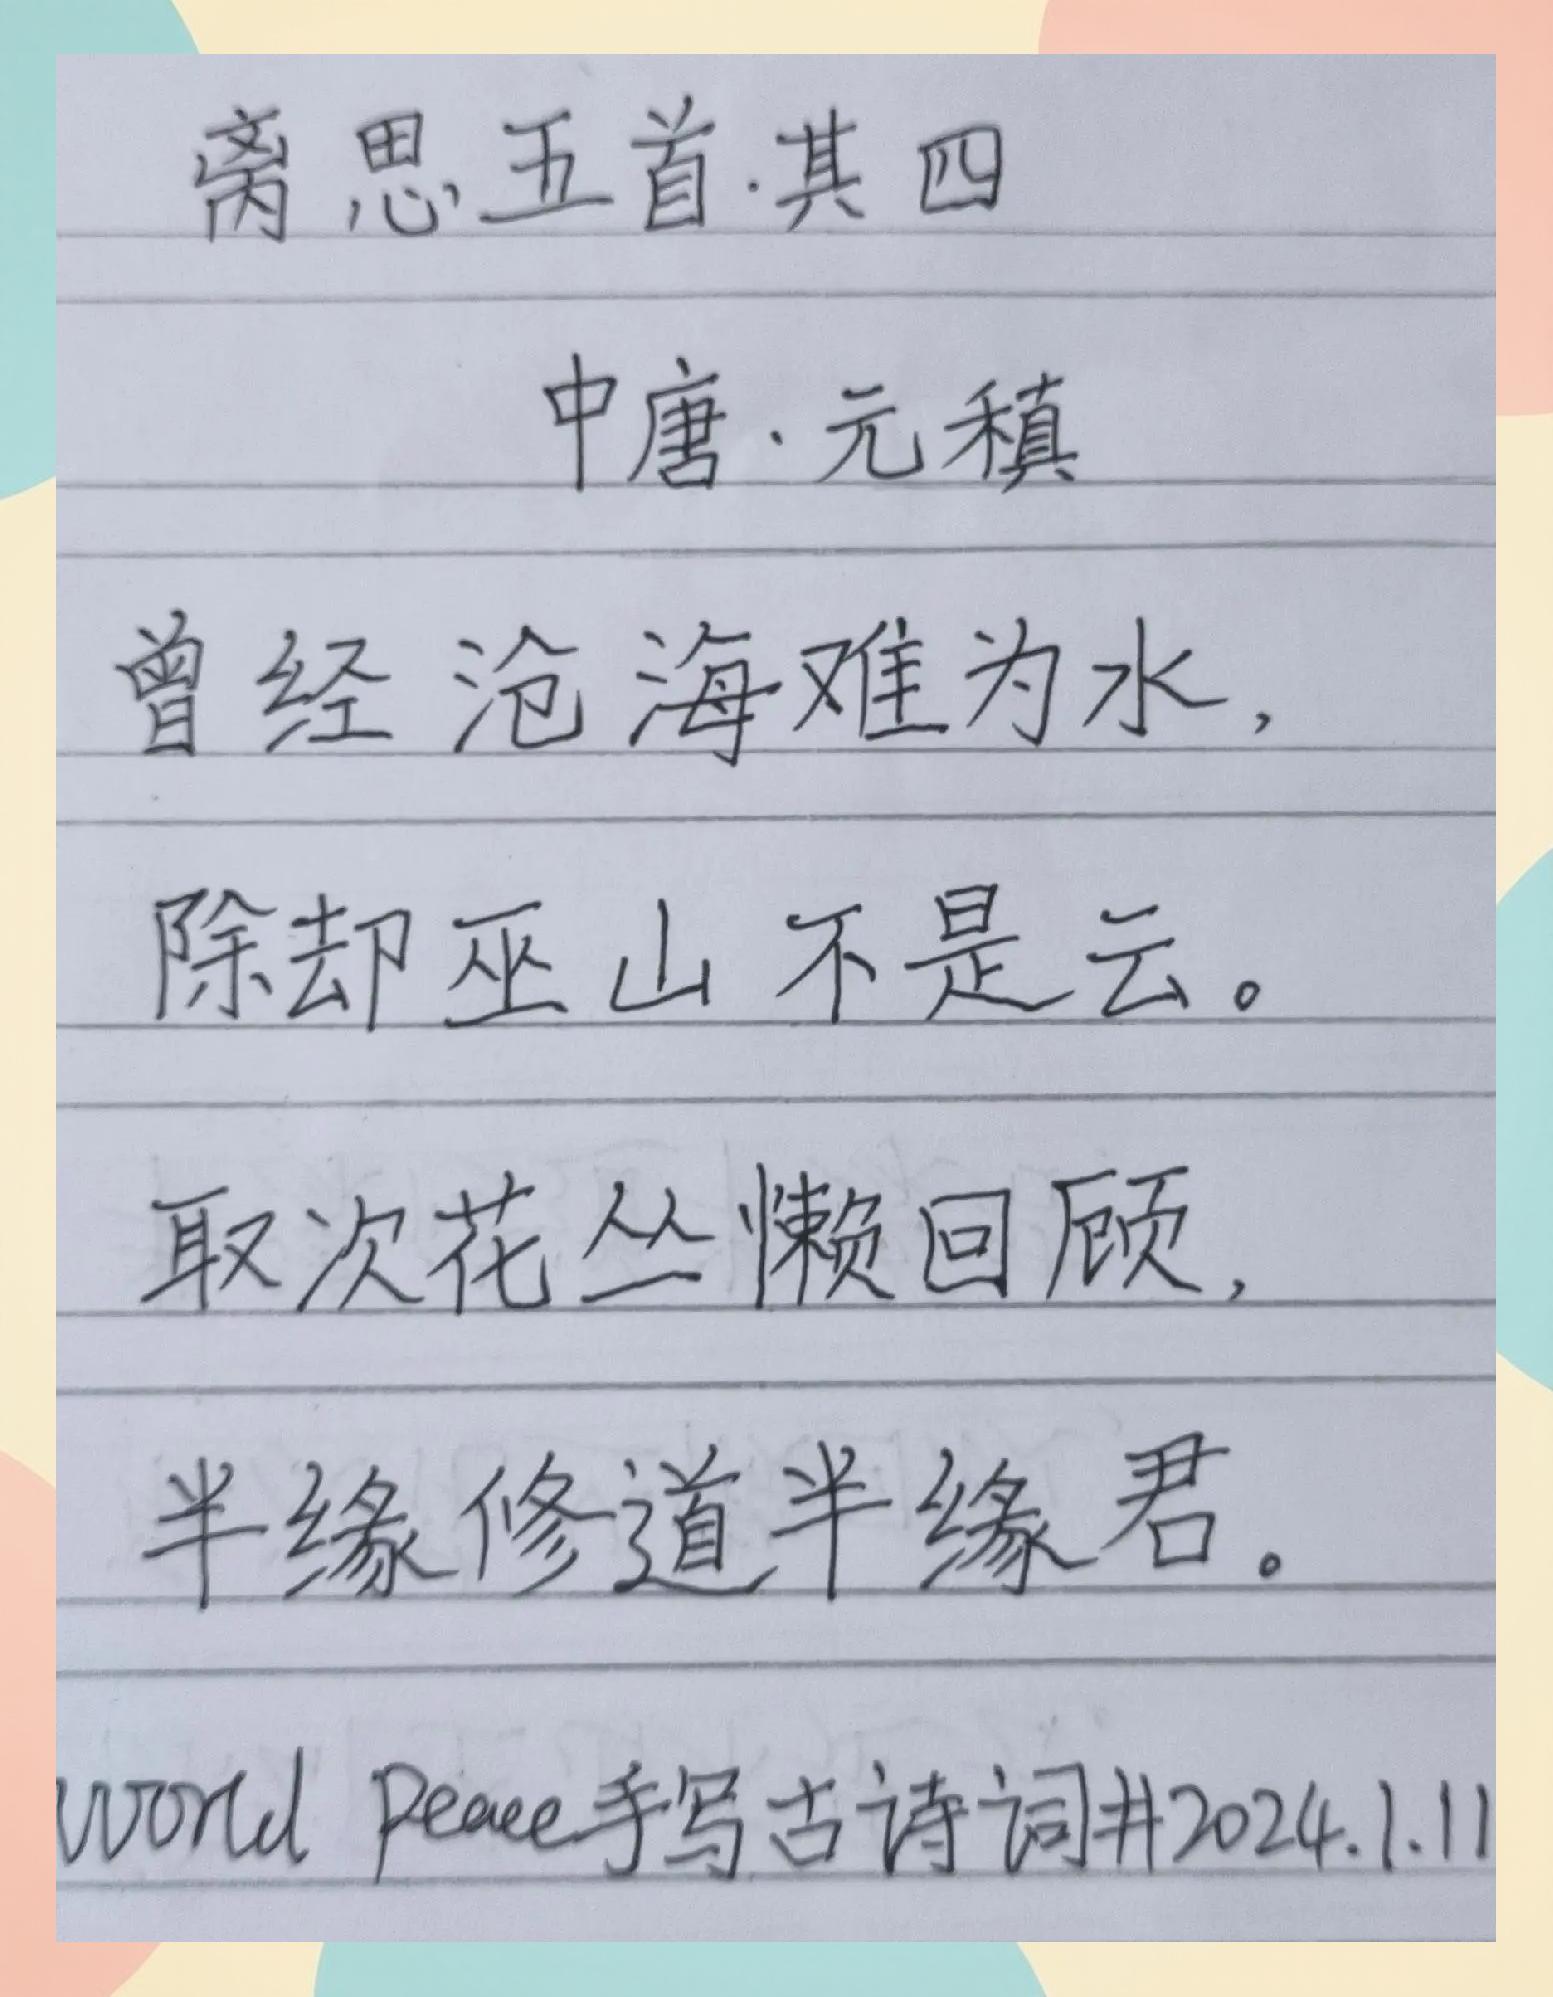 离思五首·其四
中唐·元稹
曾经沧海难为水，
除却巫山不是云。
取次花丛懒回顾，
半缘修道半缘君。
World Peace手写古诗词#2024.1.11